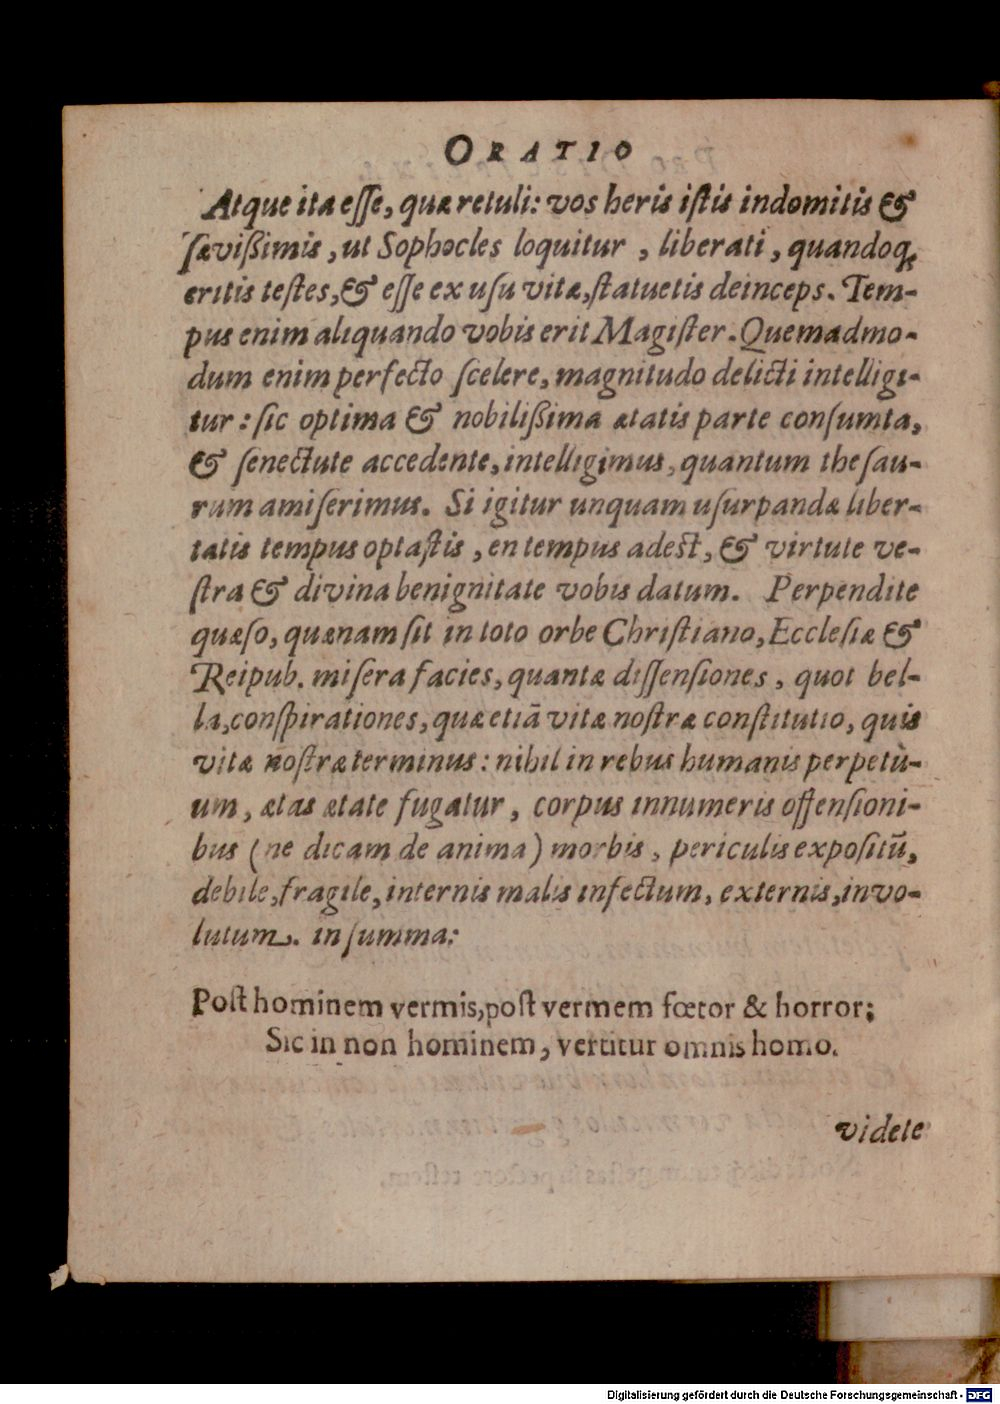 ORATIO
Atque ita esse, quæ retuli: vos heris istis indomitis &
sævißimis, ut Sophocles loquitur, liberati, quandoq;
eritis testes, & esse ex usu vitæ, statuetis deinceps. Tem-
pus enim aliquando vobis erit Magister. Quemadmo-
dum enim perfecto scelere, magnitudo delicti intelligi-
tur: sic optima & nobilißima ætatis parte consumta,
& senectute accedente, intelligimus, quantum thesau-
rum amiserimus. Si igitur unquam usurpandæ liber-
tatis tempus optastis, en tempus adest, & virtute ve-
stra & divina benignitate vobis datum. Perpendite
quæso, quænam sit in toto orbe Christiano, Ecclesiæ &
Reipub. misera facies, quantæ dissensiones, quot bel-
la, conspirationes, quæ etiã vitæ nostræ constitutio, quis
vitæ nostræ terminus: nihil in rebus humanis perpetù-
um, ætas ætate fugatur, corpus innumeris offensioni-
bus (ne dicam de anima) morbis, periculis expositũ,
debile, fragile, internis malis infectum, externis, invo-
lutum. in summa:
Post hominem vermis, post vermem fœtor & horror;
Sic in non hominem, vertitur omnis homo.
videte
Digitalisierung gefördert durch die Deutsche Forschungsgemeinschaft - DFG